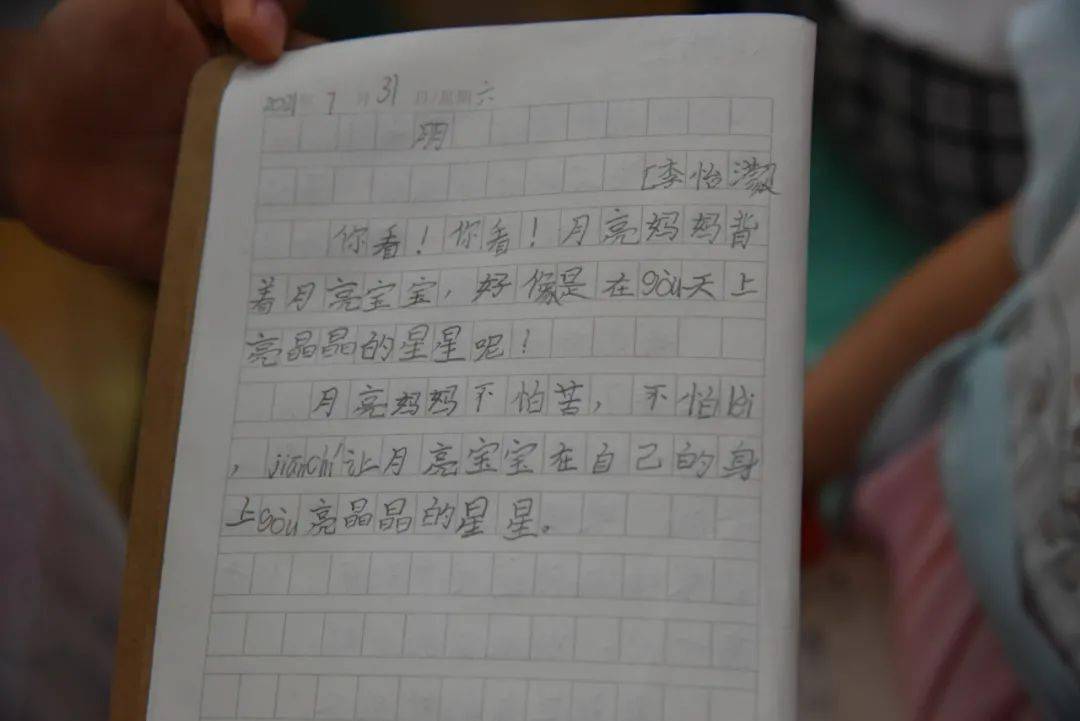 2021年 7 月 31 日/星期 六
明
[李怡潞
你看！你看！月亮妈妈背
着月亮宝宝，好像是在gòu天上
亮晶晶的星星呢！
月亮妈妈不怕苦，不怕lèi
，jiānchí让月亮宝宝在自己的身
上gòu亮晶晶的星星。